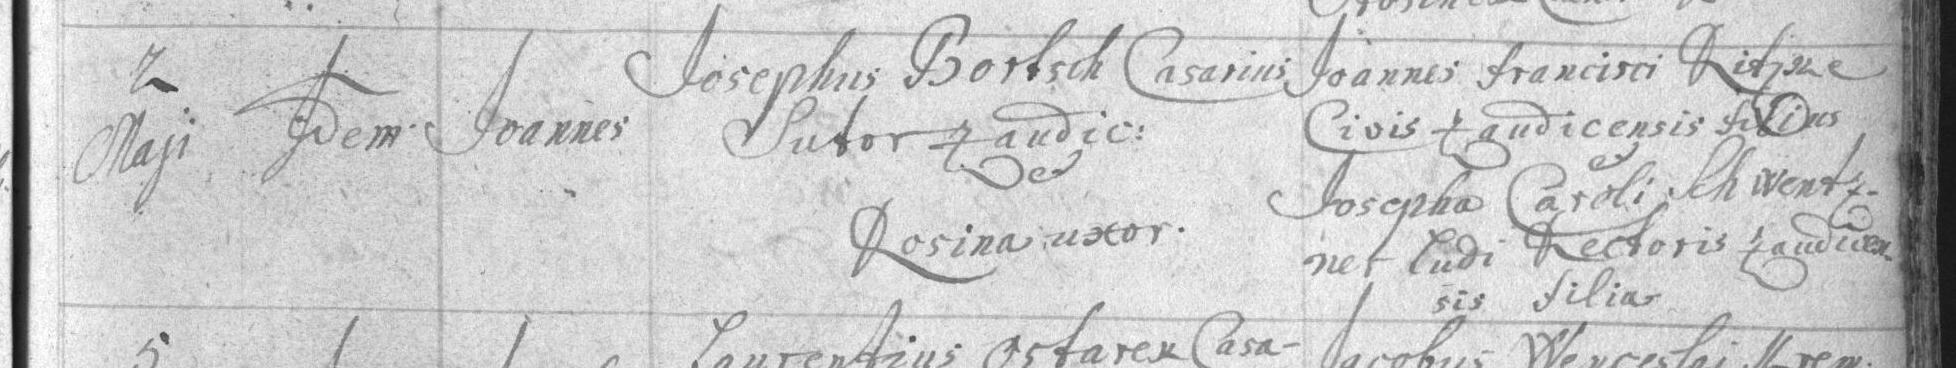 2 Maji
Idem
Joannes
Josephus Bortsch Casarius
Sutor Zaudic:
et
Rosina uxor.
Joannes Francisci
Civis Zaudicensis filius
et
Josepha Caroli Schwentz-
ner Ludi Rectoris Zaudicen-
sis filia
5
Laurentius Casa-
Jacobus Wenceslai